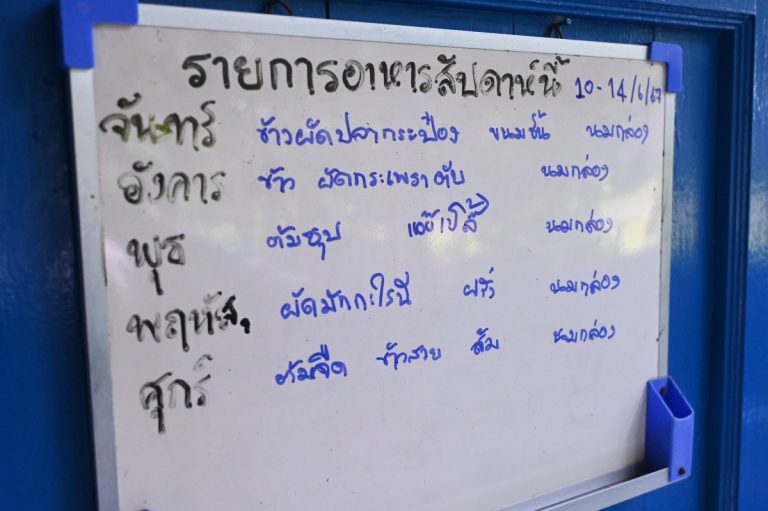 รายการอาหารสัปดาห์นี้ 10-14/6/67
จันทร์ ข้าวผัดปลากระป๋อง ขนมชั้น นมกล่อง
อังคาร ข้าว ผัดกระเพราตับ นมกล่อง
พุธ ต้มซุป แอ๊ปเปิ้ล นมกล่อง
พฤหัส, ผัดมักกะโรนี ฝรั่ง นมกล่อง
ศุกร์ ต้มจืด ข้าวสวย ส้ม นมกล่อง